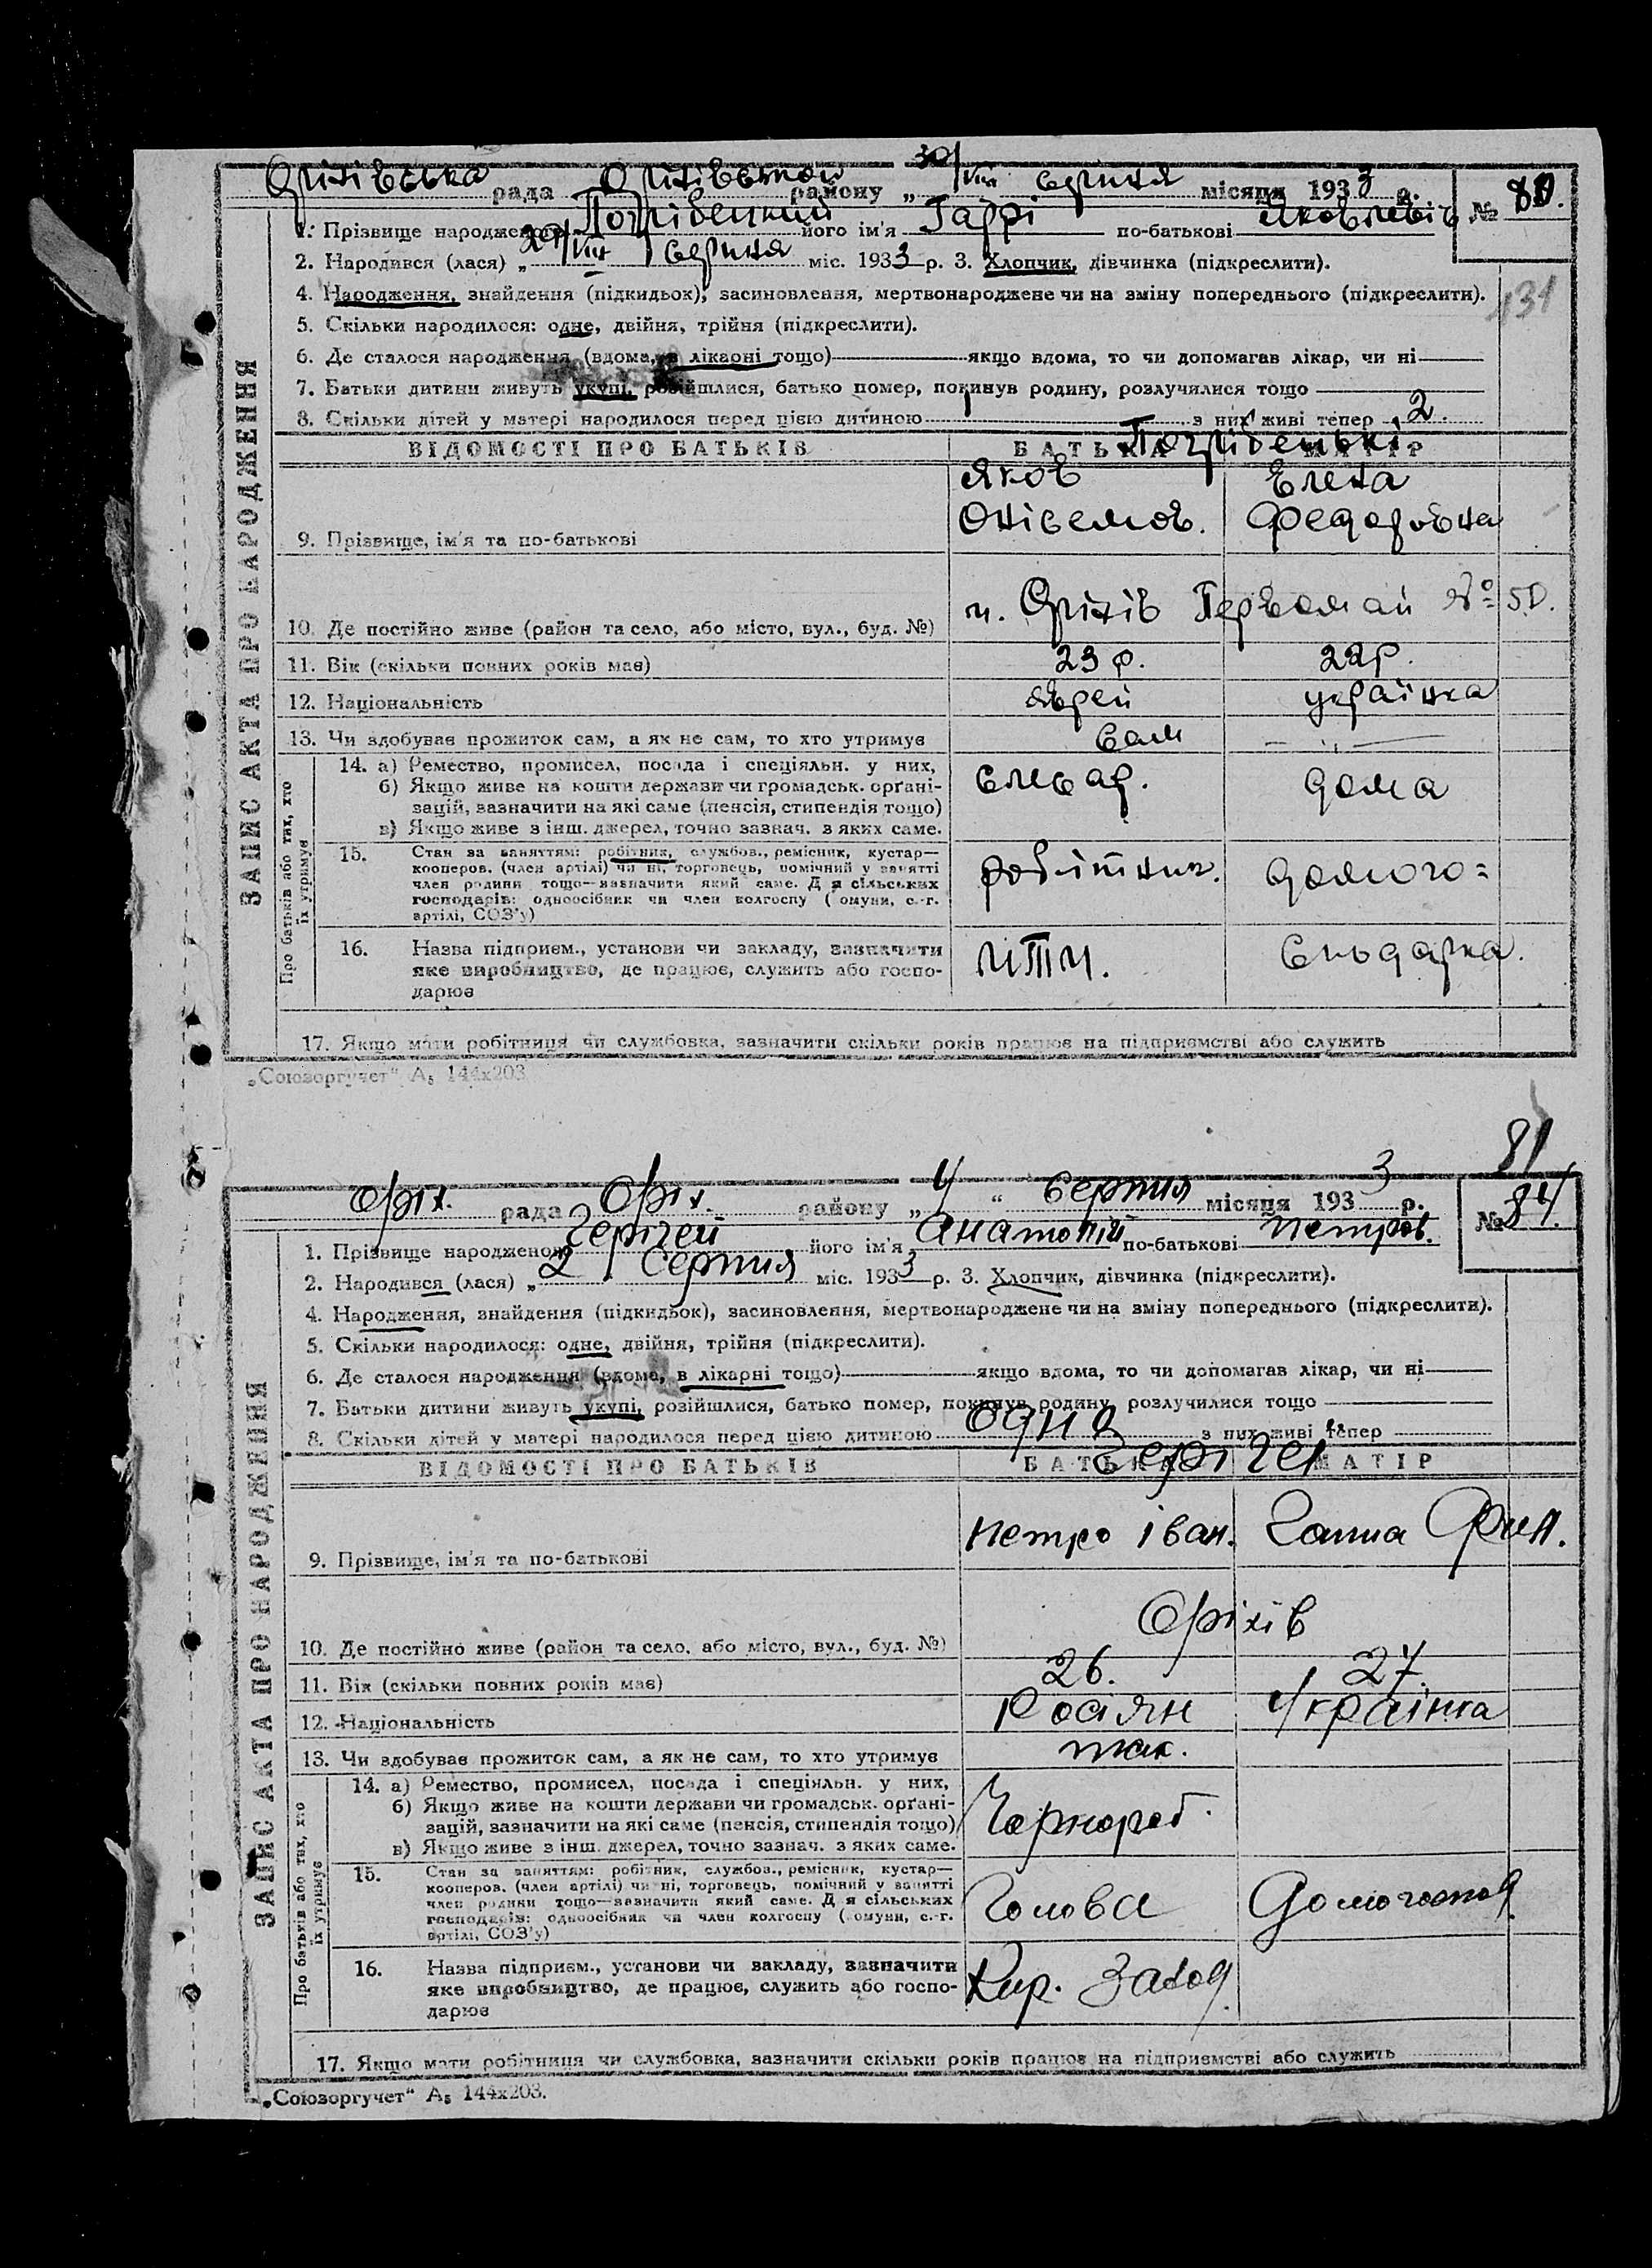 Оріхівська рада Оріхівськой району „30/VIII серпня місяця 1933 р. № 80.
1. Прізвище народженого Погрібецкий його ім'я Гаррі по-батькові Яковлевіч
2. Народився (лася) „29/VIII серпня міс. 1933 р. 3. Хлопчик, дівчинка (підкреслити).
4. Народження, знайдення (підкидьок), засиновлення, мертвонароджене чи на зміну попереднього (підкреслити).
131
5. Скільки народилося: одне, двійня, трійня (підкреслити).
6. Де сталося народження (вдома, в лікарні тощо) якщо вдома, то чи допомагав лікар, чи ні
7. Батьки дитини живуть укупі, розійшлися, батько помер, покинув родину, розлучилися тощо
8. Скільки дітей у матері народилося перед цією дитиною 1 з них живі тепер 2.
ЗАПИС АКТА ПРО НАРОДЖЕННЯ
ВІДОМОСТІ ПРО БАТЬКІВ БАТЬКА МАТІР
Яков Елена
Онісемов. Федоровна
9. Прізвище, ім'я та по-батькові
м. Оріхів Первомай № 50.
10. Де постійно живе (район та село, або місто, вул., буд. №)
11. Вік (скільки повних років має) 23 р. 22 р.
12. Національність яврей українка
13. Чи здобуває прожиток сам, а як не сам, то хто утримує сам
Про батьків або тих, хто їх утримує
14. а) Ремество, промисел, посада і спеціяльн. у них,
б) Якщо живе на кошти держави чи громадськ. орґані-
зацій, зазначити на які саме (пенсія, стипендія тощо)
в) Якщо живе з інш. джерел, точно зазнач. з яких саме.
слюсар. дома
15. Стан за заняттям: робітник, службов., ремісник, кустар—
кооперов. (член артілі) чи ні, торговець, помічний у занятті
член родини тощо—зазначити який саме. Д я сільських
господарів: одноосібник чи член колгоспу ( омуни, с.-г.
артілі, СОЗ'у)
робітник. домого=
16. Назва підприєм., установи чи закладу, зазначити
яке виробництво, де працює, служить або госпо-
дарює
сподарка.
17. Якщо мати робітниця чи службовка, зазначити скільки років працює на підприємстві або служить
„Союзоргучет“ А₅ 144х203
81
Оріх. рада Оріх. району „4“ Серпня місяця 1933 р. № 84.
1. Прізвище народженого його ім'я Анатолій по-батькові Петров.
2. Народився (лася) „2 Серпня міс. 1933 р. 3. Хлопчик, дівчинка (підкреслити).
4. Народження, знайдення (підкидьок), засиновлення, мертвонароджене чи на зміну попереднього (підкреслити).
5. Скільки народилося: одне, двійня, трійня (підкреслити).
6. Де сталося народження (вдома, в лікарні тощо) якщо вдома, то чи допомагав лікар, чи ні
7. Батьки дитини живуть укупі, розійшлися, батько помер, покинув родину, розлучилися тощо
8. Скільки дітей у матері народилося перед цією дитиною одна з них живі тепер
ЗАПИС АКТА ПРО НАРОДЖЕННЯ
ВІДОМОСТІ ПРО БАТЬКІВ БАТЬКА МАТІР
Петро Іван. Ганна Фил.
9. Прізвище, ім'я та по-батькові
Оріхів
10. Де постійно живе (район та село, або місто, вул., буд. №)
11. Вік (скільки повних років має) 26. 27.
12. Національність Росіян Українка
13. Чи здобуває прожиток сам, а як не сам, то хто утримує так.
Про батьків або тих, хто їх утримує
14. а) Ремество, промисел, посада і спеціяльн. у них,
б) Якщо живе на кошти держави чи громадськ. орґані-
зацій, зазначити на які саме (пенсія, стипендія тощо)
в) Якщо живе з інш. джерел, точно зазнач. з яких саме.
Чорнороб.
15. Стан за заняттям: робітник, службов., ремісник, кустар—
кооперов. (член артілі) чи ні, торговець, помічний у занятті
член родини тощо—зазначити який саме. Д я сільських
господарів: одноосібник чи член колгоспу ( омуни, с.-г.
артілі, СОЗ'у)
Голова Домогоспод.
16. Назва підприєм., установи чи закладу, зазначити
яке виробництво, де працює, служить або госпо-
дарює
Кир. Завод.
17. Якщо мати робітниця чи службовка, зазначити скільки років працює на підприємстві або служить
„Союзоргучет“ А₅ 144х203.